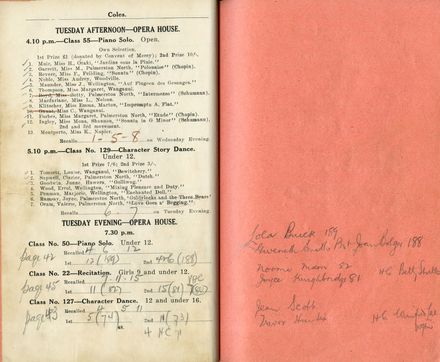 Coles.
TUESDAY AFTERNOON—OPERA HOUSE.
4.10 p.m.—Class 55—Piano Solo. Open.
Own Selection.
1st Prize £3 (donated by Convent of Mercy); 2nd Prize 10/-.
1. Muir, Miss H., Otaki, "Jardins sous la Pluie."
2. Garrett, Miss M., Palmerston North, "Polonaise" (Chopin).
3. Revere, Miss F., Feilding, "Sonata" (Chopin).
4. Noble, Miss Audrey, Woodville.
5. Maunder, Miss J., Wellington, "Auf Flugeen des Gesanges."
6. Thompson, Miss Margaret, Wanganui.
7. Betty, Palmerston North, "Intermezzo" (Schumann).
8. Macfarlane, Miss L., Nelson.
9. Klitscher, Miss Emma, Marton, "Impromptu A Flat."
10. Miss C., Wanganui.
11. Fisher, Miss Margaret, Palmerston North, "Etude" (Chopin).
12. Ingley, Miss Mona, Shannon, "Sonata in G Minor" (Schumann), 2nd and 3rd movement.
13. Miss K., Napier.
Recalled 1-5-8 on Wednesday Evening.
5.10 p.m.—Class No. 129—Character Story Dance.
Under 12.
1st Prize 7/6; 2nd Prize 3/-.
1. Louise, Wanganui, "Bewitchery."
2. Clarice, Palmerston North, "Dutch."
3. Goodwin, Hawera, "Golliwog."
4. Wood, Errol, Wellington, "Mixing Pleasure and Duty."
5. Poland Maureen, Wellington, "Doll."
6. Ramsay, Joyce, Palmerston North, "Goldylocks and the Three Bears"
7. Oram, Valerie, Palmerston North, "Love Goes a' Begging."
Recalled 6-7 on Tuesday Evening.
TUESDAY EVENING—OPERA HOUSE.
7.30 p.m.
Class No. 50—Piano Solo. Under 12.
page 42 Recalled 4 6 12
1st 12 (189) 2nd 4 (188)
Class No. 22—Recitation. Girls 9 and under 12.
page 45 Recalled 11 15
1st 11 (82) 2nd 15 (81)
Class No. 127—Character Dance. 12 and under 16.
page Recalled 4 5 11
1st 5 (74) 2nd 11 (73)
4 HC
Iola Buick 189
Smith Joan Bolger 188
Naomi Mason 82
Joyce Knightbridge 81
HC Betty
Jean Scott
Trevor
HC